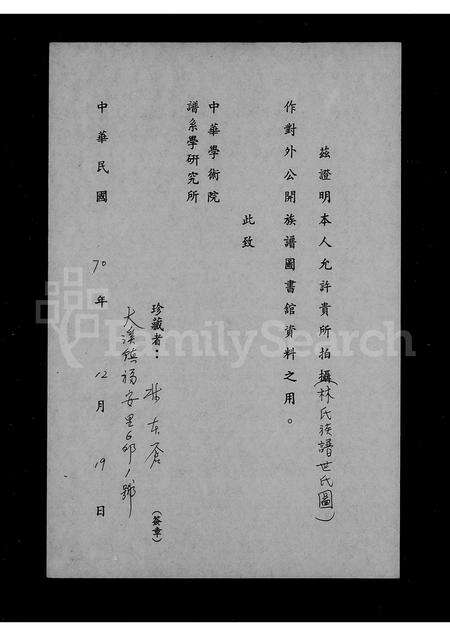 茲證明本人允許貴所拍攝林氏族譜世氏圖)
作對外公開族譜圖書館資料之用。
此致
中華學術院
譜系學研究所
珍藏者：林東蒼
(簽章)
大溪鎮福安里6鄰1號
中華民國70年12月19日
FamilySearch